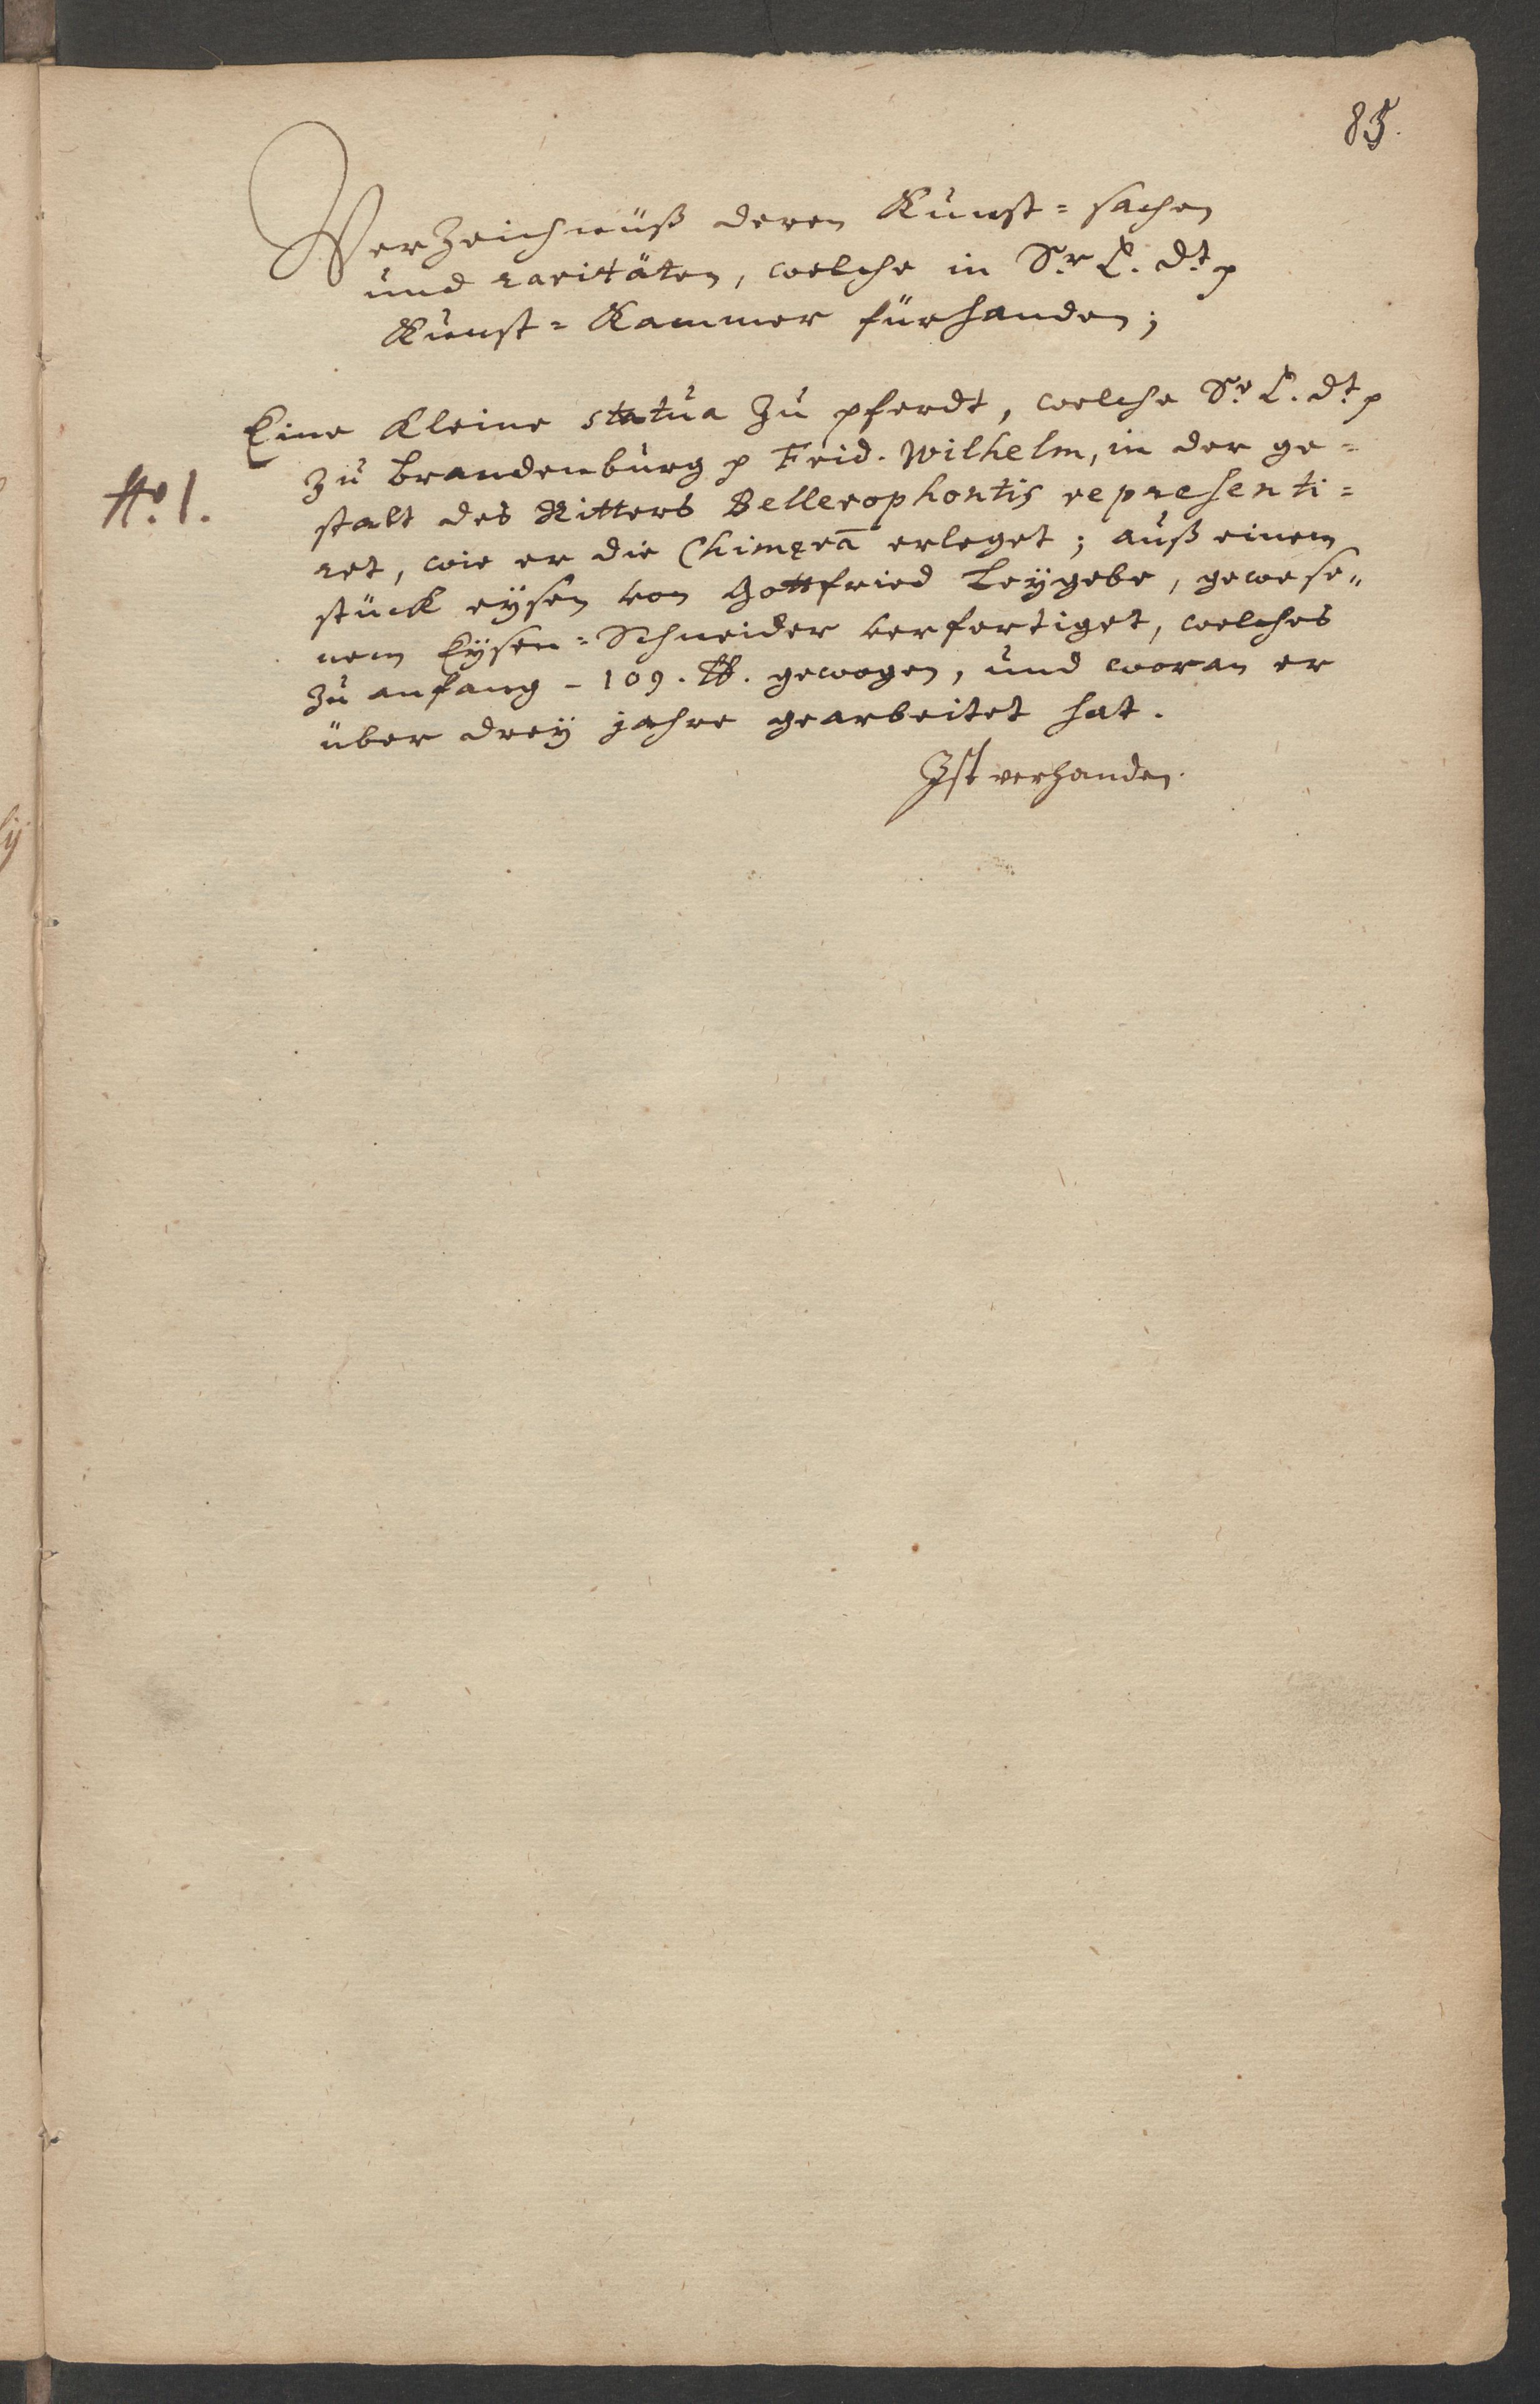 85.
Verzeichnüß deren Kunst=sachen
und raritäten, welche in Sr. C. Dt. p
Kunst=Kammer fürhanden;
Eine kleine statua zu pferdt, welche Sr. C. Dt. p
zu Brandenburg p Frid. Wilhelm, in der ge=
No. 1.
stalt des Ritters Bellerophontis repræsenti=
ret, wie er die Chimæra erleget; auß einem
stück eysen von Gottfried Leygebe, gewese"
nem Eysen=Schneider verfertiget, welches
zu anfang - 109. ℔. gewogen, und woran er
über drey jahre gearbeitet hat.
Ist verhanden.